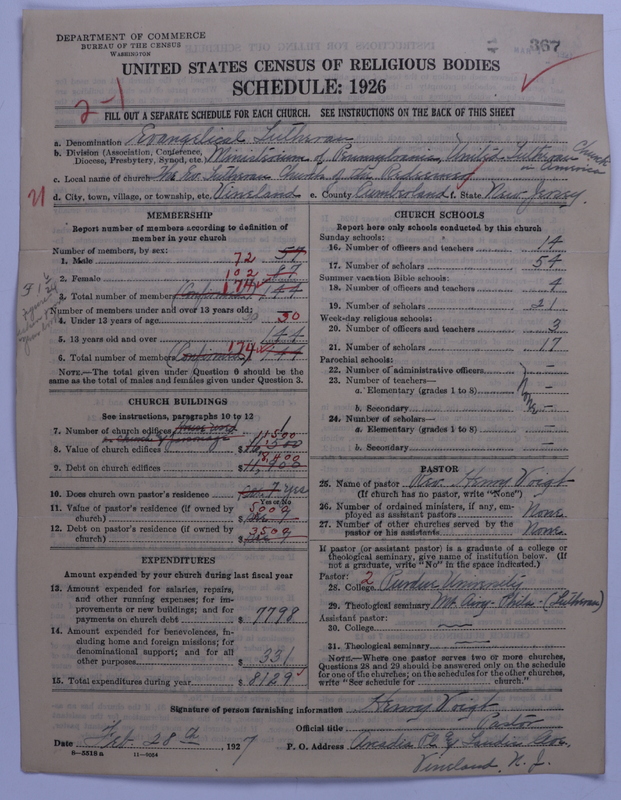 DEPARTMENT OF COMMERCE
BUREAU OF THE CENSUS
WASHINGTON
367
UNITED STATES CENSUS OF RELIGIOUS BODIES
SCHEDULE: 1926
2-1
FILL OUT A SEPARATE SCHEDULE FOR EACH CHURCH. SEE INSTRUCTIONS ON THE BACK OF THIS SHEET
a. Denomination Evangelical Lutheran
b. Division (Association, Conference, Diocese, Presbytery, Synod, etc.) Ministerium of Pennsylvania, United Lutheran Church in America
c. Local name of church The Ev. Lutheran Church of the Redeemer
d. City, town, village, or township, etc. Vineland e. County Cumberland f. State New Jersey.
MEMBERSHIP
Report number of members according to definition of
member in your church
Number of members, by sex:
1. Male 72 57
2. Female 102 87
3. Total number of members (Confirmed) 174 144
Number of members under and over 13 years old:
4. Under 13 years of age 30
5. 13 years old and over 144
6. Total number of members (Confirmed) 174 144
NOTE.—The total given under Question 6 should be the
same as the total of males and females given under Question 3.
CHURCH BUILDINGS
See instructions, paragraphs 10 to 12
7. Number of church edifices 1
8. Value of church edifices $ 11,500
9. Debt on church edifices $
10. Does church own pastor's residence Yes
Yes or No
11. Value of pastor's residence (if owned by
church) $ 5000
12. Debt on pastor's residence (if owned by
church) $ 3500
EXPENDITURES
Amount expended by your church during last fiscal year
13. Amount expended for salaries, repairs,
and other running expenses; for im-
provements or new buildings; and for
payments on church debt $ 7798
14. Amount expended for benevolences, in-
cluding home and foreign missions; for
denominational support; and for all
other purposes $ 331
15. Total expenditures during year $ 8129
CHURCH SCHOOLS
Report here only schools conducted by this church
Sunday schools:
16. Number of officers and teachers 14
17. Number of scholars 54
Summer vacation Bible schools:
18. Number of officers and teachers 4
19. Number of scholars 21
Week-day religious schools:
20. Number of officers and teachers 3
21. Number of scholars 17
Parochial schools:
22. Number of administrative officers —
23. Number of teachers—
a. Elementary (grades 1 to 8) — None
b. Secondary —
24. Number of scholars—
a. Elementary (grades 1 to 8) —
b. Secondary —
PASTOR
25. Name of pastor Rev. Henry Voigt
(If church has no pastor, write "None")
26. Number of ordained ministers, if any, em-
ployed as assistant pastors None
27. Number of other churches served by the
pastor or his assistants None
If pastor (or assistant pastor) is a graduate of a college or
theological seminary, give name of institution below. (If
not a graduate, write "No" in the space indicated.)
Pastor:
28. College 2 Purdue University
29. Theological seminary Mt. Airy - Phila - (Lutheran)
Assistant pastor:
30. College
31. Theological seminary
NOTE.—Where one pastor serves two or more churches,
Questions 28 and 29 should be answered only on the schedule
for one of the churches; on the schedules for the other churches,
write "See schedule for church."
Signature of person furnishing information Henry Voigt
Official title Pastor
Date Feb. 28th 1927 P. O. Address Arcadia Pl. & Landis Ave.
Vineland, N. J.
8—5518 a 11—9054